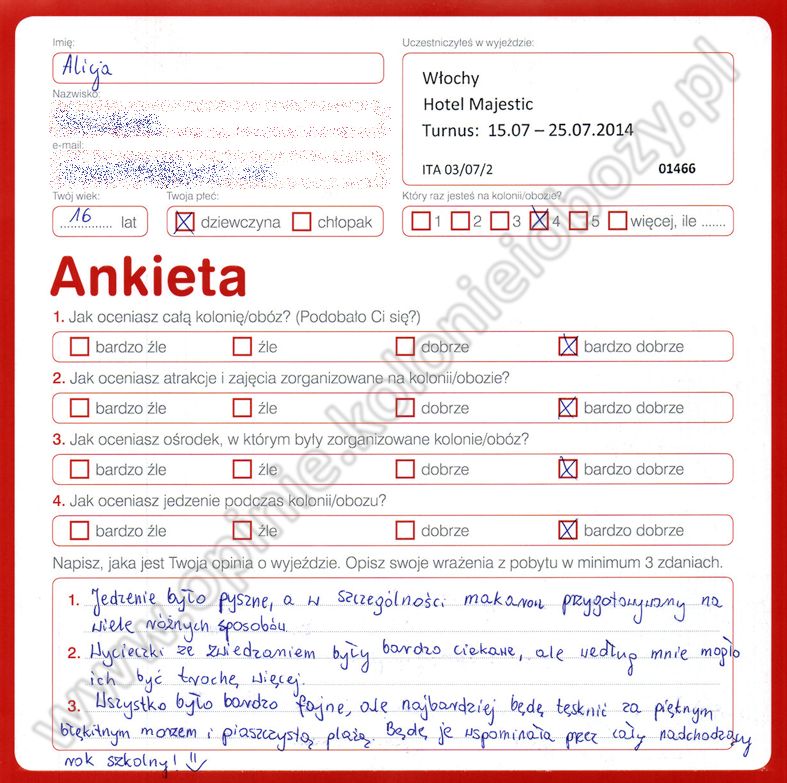 Imię:
Alicja
Nazwisko:
e-mail:
Uczestniczyłeś w wyjeździe:
Włochy
Hotel Majestic
Turnus: 15.07 – 25.07.2014
ITA 03/07/2 01466
Twój wiek:
16 lat
Twoja płeć:
dziewczyna chłopak
Który raz jesteś na kolonii/obozie?
1 2 3 4 5 więcej, ile .......
Ankieta
1. Jak oceniasz całą kolonię/obóz? (Podobało Ci się?)
bardzo źle źle dobrze bardzo dobrze
2. Jak oceniasz atrakcje i zajęcia zorganizowane na kolonii/obozie?
bardzo źle źle dobrze bardzo dobrze
3. Jak oceniasz ośrodek, w którym były zorganizowane kolonie/obóz?
bardzo źle źle dobrze bardzo dobrze
4. Jak oceniasz jedzenie podczas kolonii/obozu?
bardzo źle źle dobrze bardzo dobrze
Napisz, jaka jest Twoja opinia o wyjeździe. Opisz swoje wrażenia z pobytu w minimum 3 zdaniach.
1. Jedzenie było pyszne, a w szczególności makaron przygotowywany na
wiele różnych sposobów.
2. Wycieczki ze zwiedzaniem były bardzo ciekawe, ale według mnie mogło
ich być trochę więcej.
3. Wszystko było bardzo fajne, ale najbardziej będę tęsknić za pięknym
błękitnym morzem i piaszczystą plażą. Będę je wspominała przez cały nadchodzący
rok szkolny! :)
www.opinie.kolonieiobozy.pl